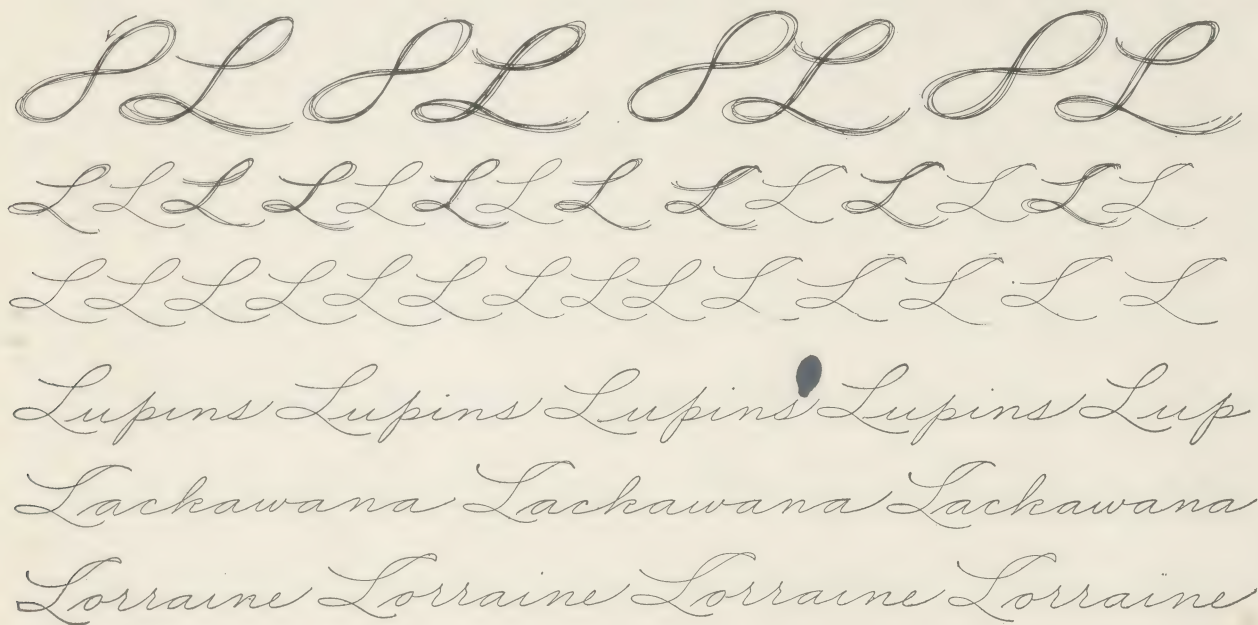 L L L L
L L L L L L L L L L L L L L
L L L L L L L L L L L L L L
Lupins Lupins Lupins Lupins Lup
Lackawana Lackawana Lackawana
Lorraine Lorraine Lorraine Lorraine